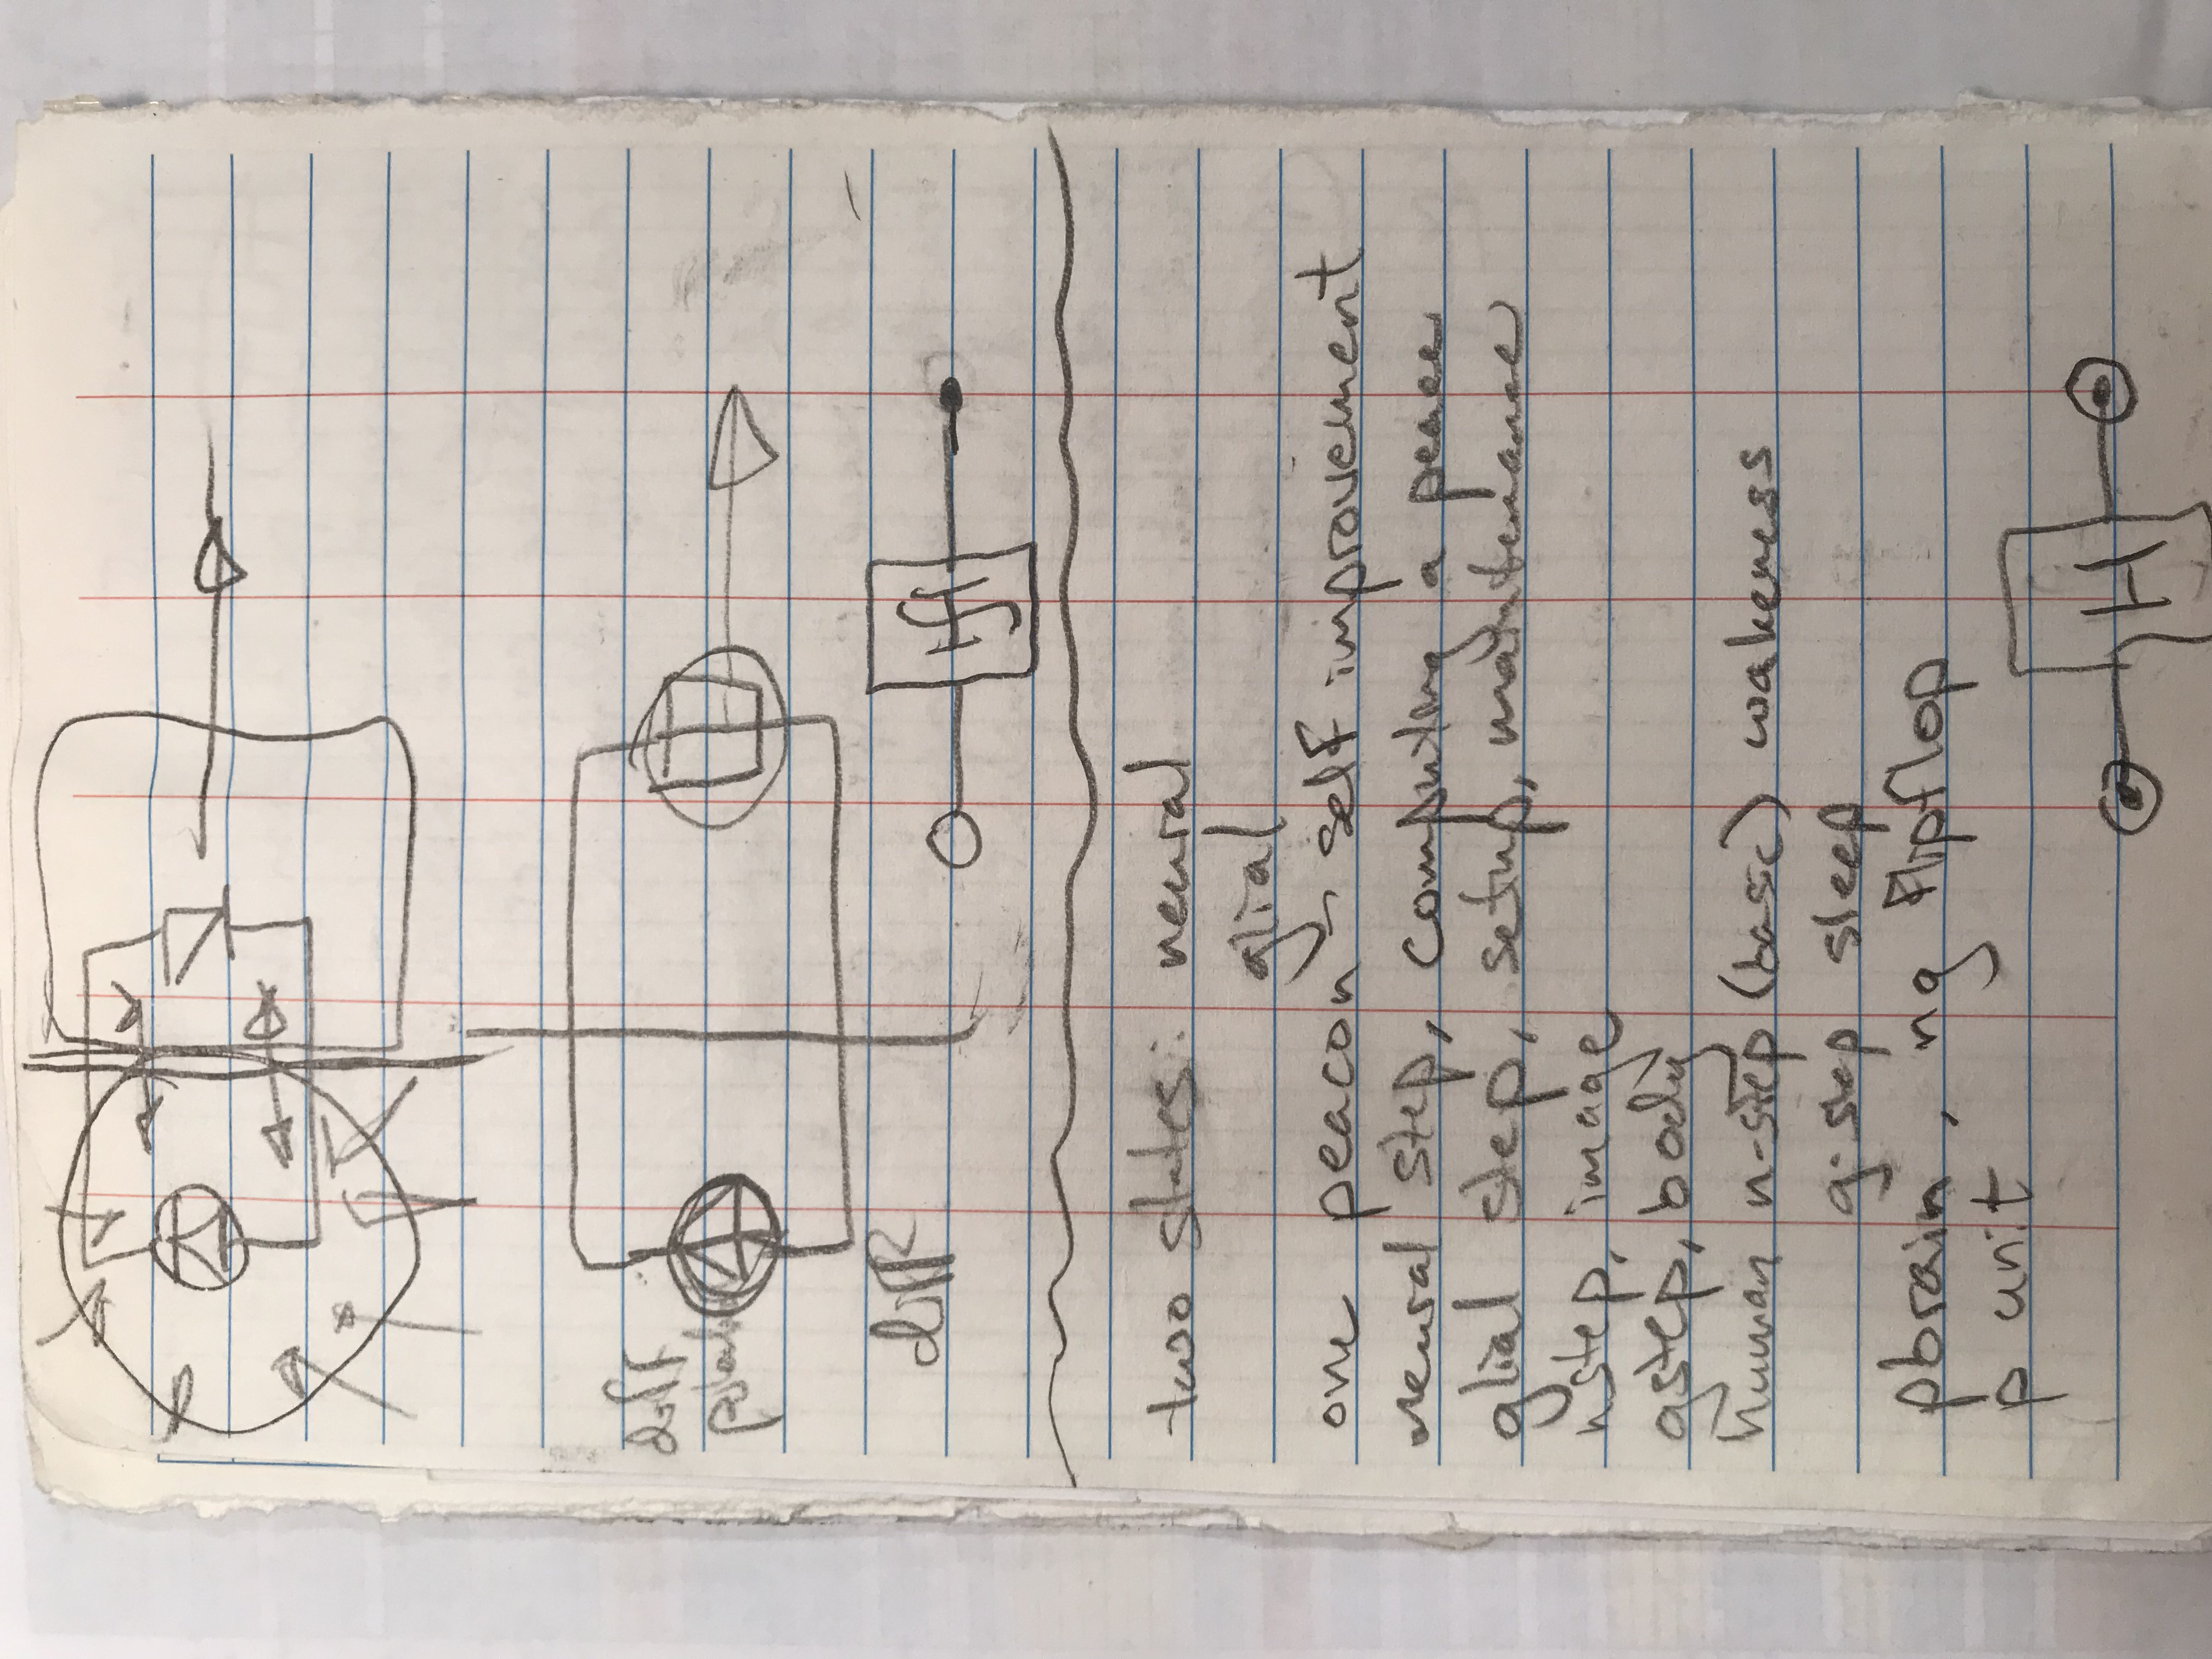 diff
diff
H
two states: neural
glial
one peacon - self improvement
neural step, computing a peace
glial step, setup, maintenance
nstep, image
gstep, body
human n-step (basic) wakeness
g-step sleep
pbrain, ng flipflop
p unit
H